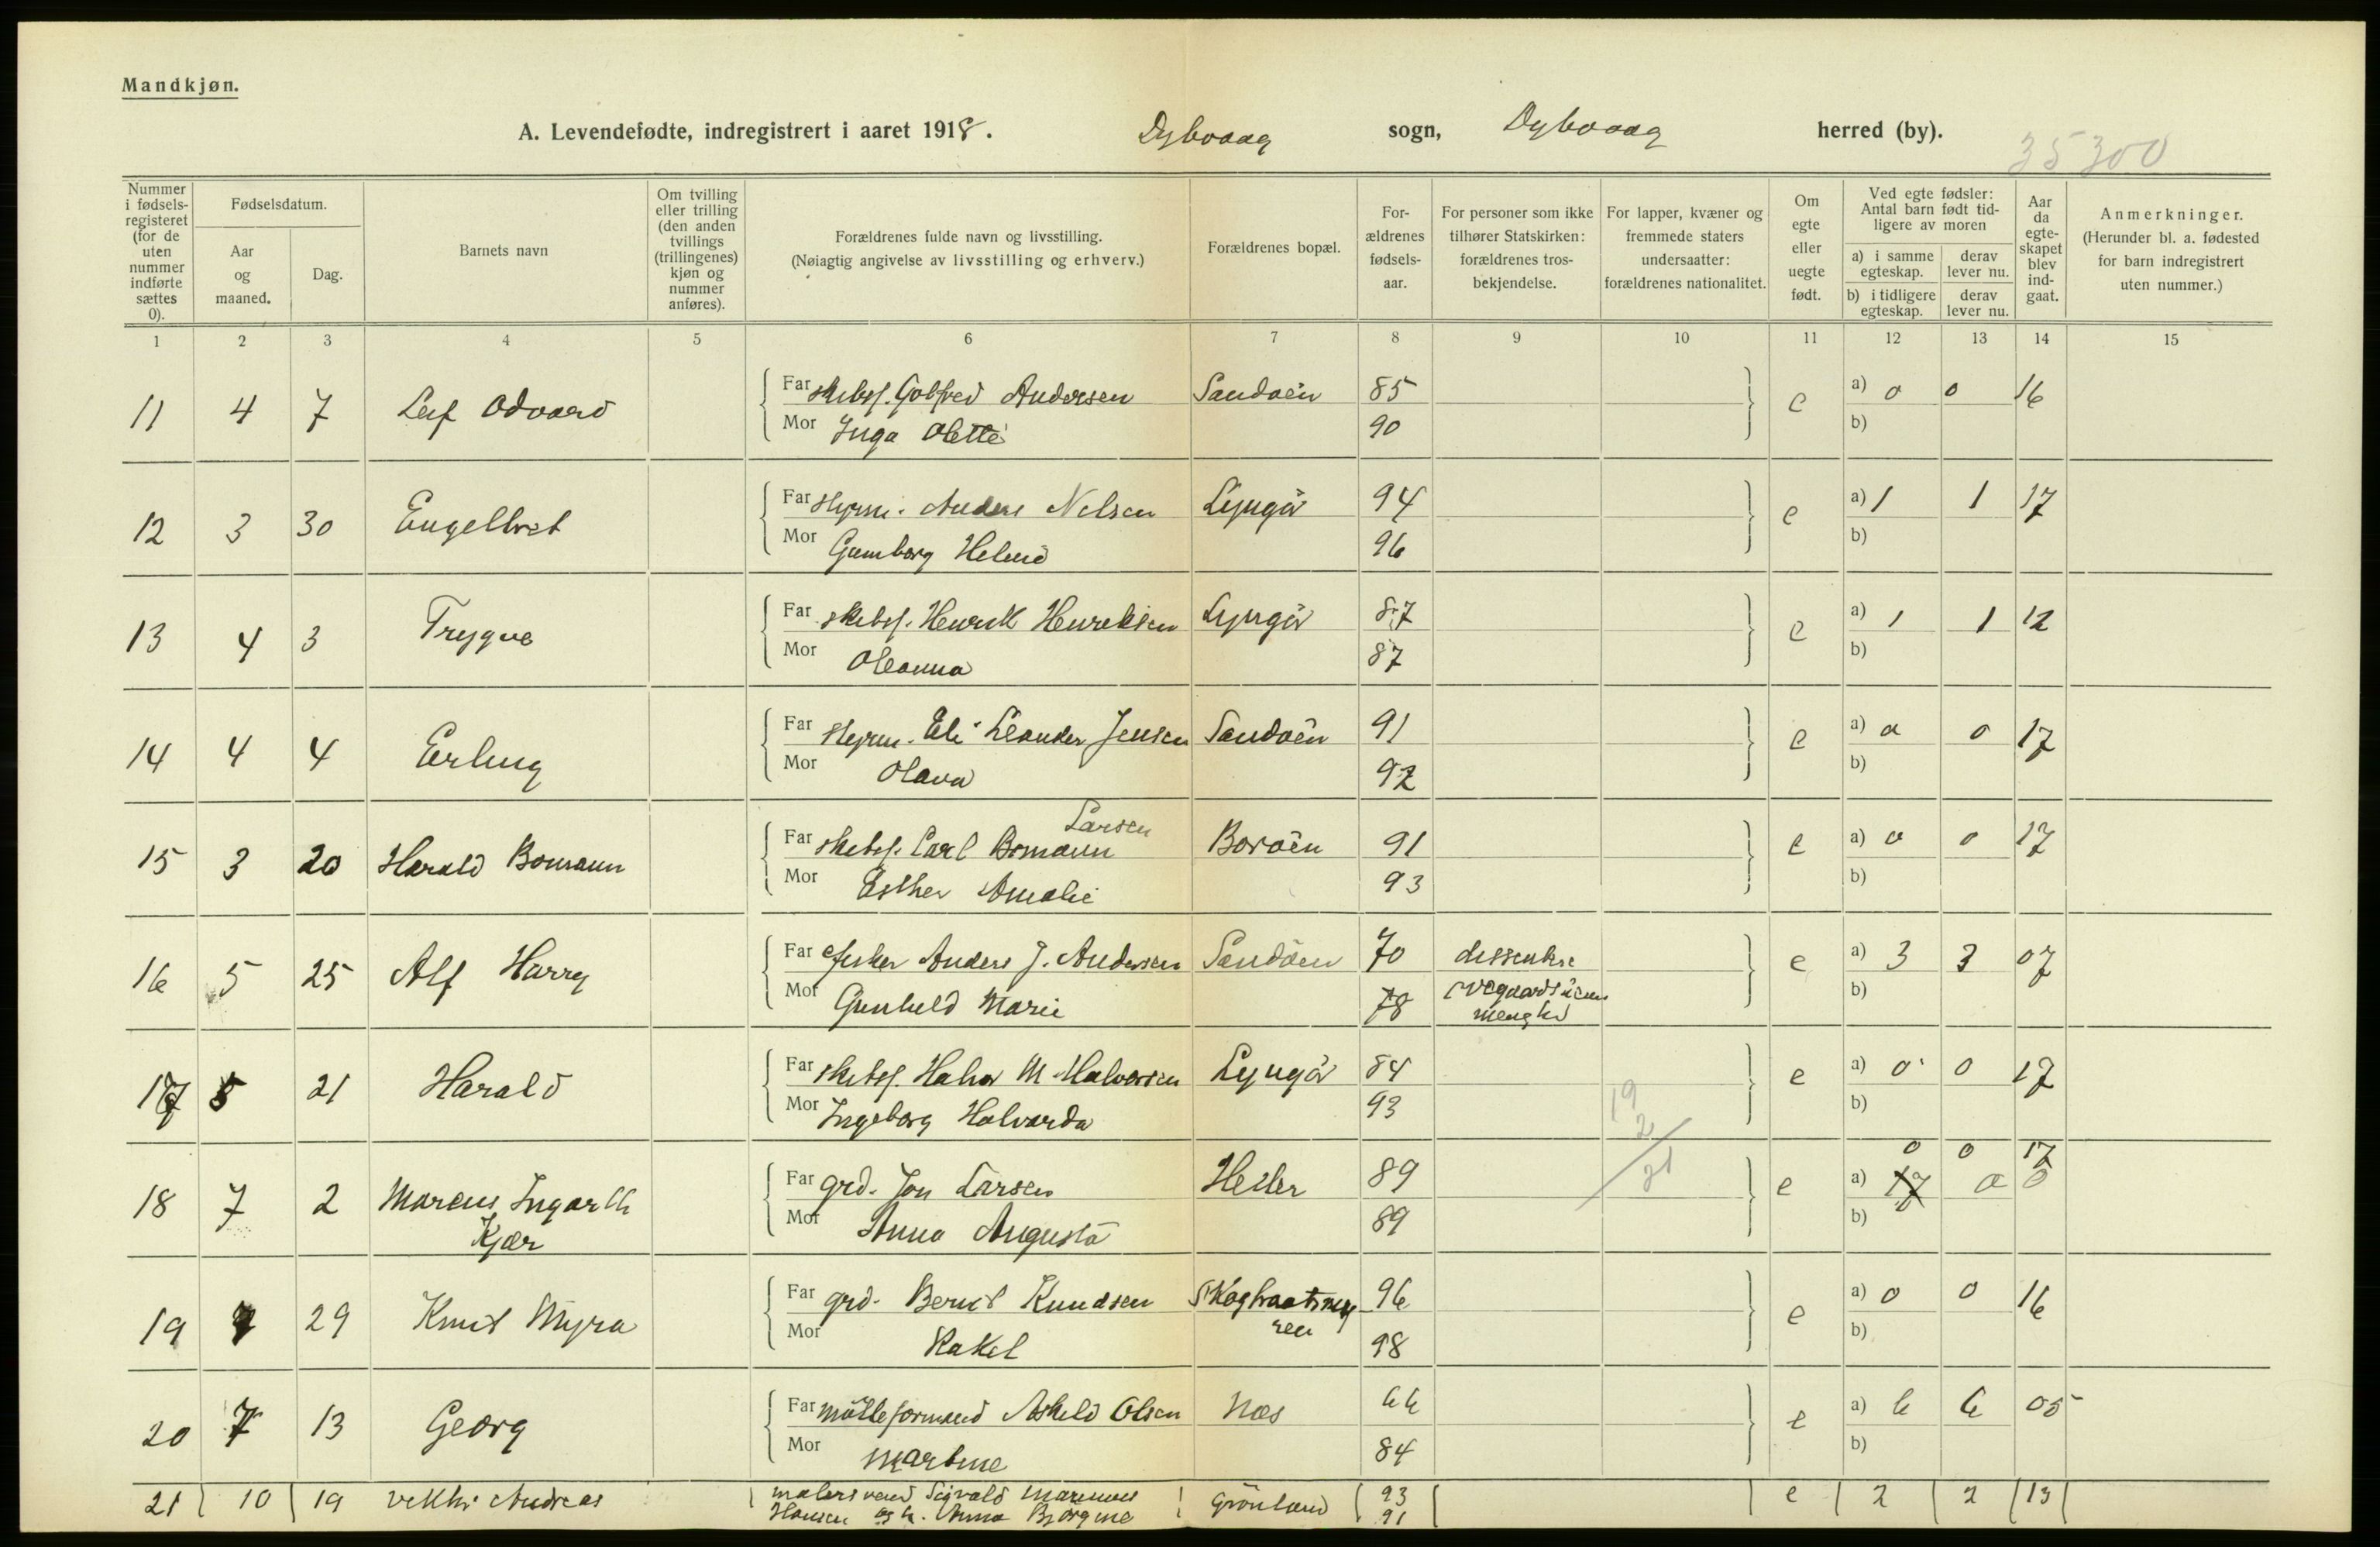 Mandkjøn.
A. Levendefødte, indregistrert i aaret 1918. Dybvaag sogn, Dybvaag herred (by).
35300
Nummer i fødsels-registeret (for de uten nummer indførte sættes 0).
Fødselsdatum.
Aar og maaned.
Dag.
Barnets navn
Om tvilling eller trilling (den anden tvillings (trillingenes) kjøn og nummer anføres).
Forældrenes fulde navn og livsstilling.
(Nøiagtig angivelse av livsstilling og erhverv.)
Forældrenes bopæl.
For-ældrenes fødsels-aar.
For personer som ikke tilhører Statskirken: forældrenes tros-bekjendelse.
For lapper, kvæner og fremmede staters undersaatter: forældrenes nationalitet.
Om egte eller uegte født.
Ved egte fødsler: Antal barn født tid-ligere av moren
a) i samme egteskap.
derav lever nu.
b) i tidligere egteskap.
derav lever nu.
Aar da egte-skapet blev ind-gaat.
Anmerkninger.
(Herunder bl. a. fødested for barn indregistrert uten nummer.)
1 2 3 4 5 6 7 8 9 10 11 12 13 14 15
11 4 7 Leif Odvard Far skibsf. Golfred Andersen Sandøen 85 e a) 0 0 16
Mor Inga Olette 90 b)
12 3 30 Engelbret Far styrm. Anders Nilsen Lyngør 94 e a) 1 1 17
Mor Gunborg Helene 96 b)
13 4 3 Trygve Far skibsf. Henrik Henriksen Lyngør 87 e a) 1 1 12
Mor Oleanna 87 b)
14 4 4 Erling Far styrm. Eli Leander Jensen Sandøen 91 e a) 0 0 17
Mor Olava 92 b)
Larsen
15 3 20 Harald Bomann Far skibsf. Carl Bomann Borøen 91 e a) 0 0 17
Mor Esther Amalie 93 b)
16 5 25 Alf Harry Far fisker Anders J. Andersen Sandøen 70 dissentere e a) 3 3 07
Mor Gunhild Marie 78 menghed b)
17 5 21 Harald Far skibsf. Halvor M. Halvorsen Lyngør 84 e a) 0 0 17
Mor Ingeborg Halvarda 93 b)
19
2
21
0 0 17
18 7 2 Marcus Ingarth Far grd. Jon Larsen 89 e a) 17 0 0
Kjær Mor Anna Augusta 89 b)
19 7 29 Knut Myra Far grd. Berut Knudsen 96 e a) 0 0 16
Mor Rakel 98 b)
20 7 13 Georg Far mølleformand Askild Olsen Næs 66 e a) 6 6 05
Mor Martine 84 b)
21 10 19 Andreas malersvend Sigvald Marinius Grönland 93 e 2 2 13
Hansen og h. Anna Bjorgine 91